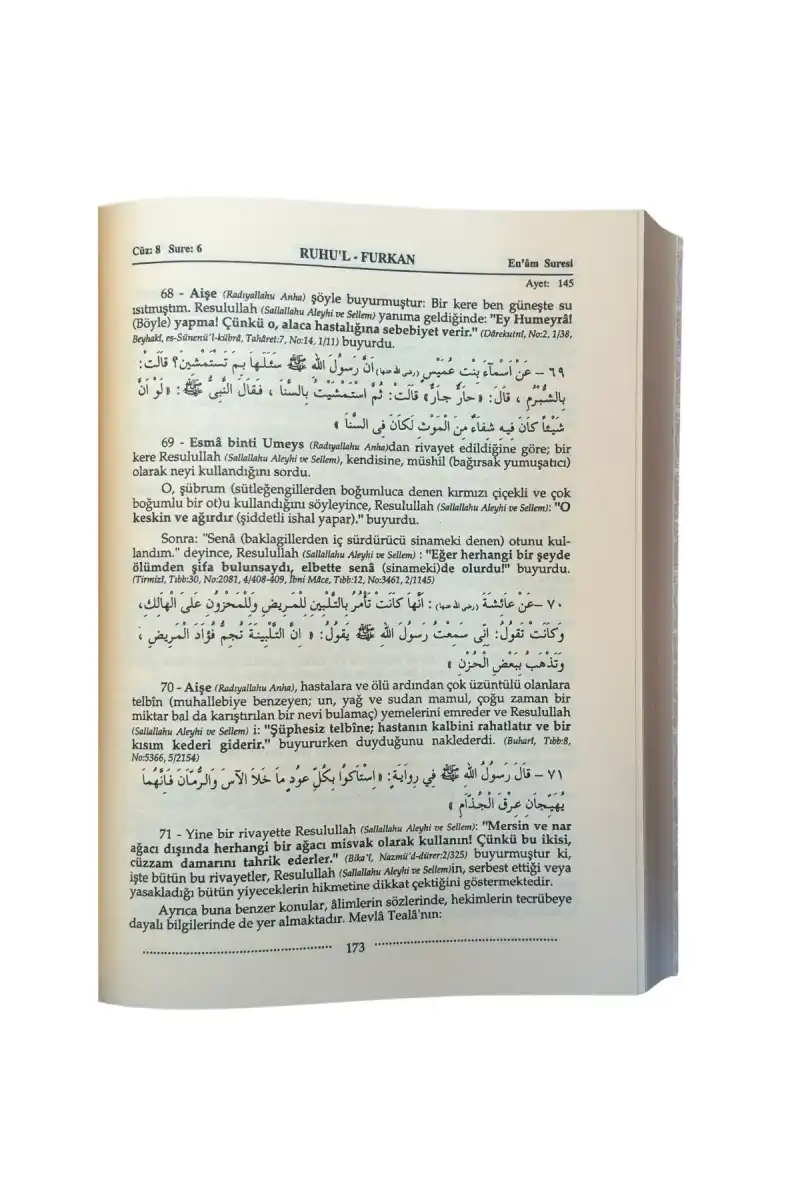 Cüz: 8 Sure: 6
RUHU'L - FURKAN
En'âm Suresi
Ayet: 145
68 - Aişe (Radıyallahu Anha) şöyle buyurmuştur: Bir kere ben güneşte su
ısıtmıştım. Resulullah (Sallallahu Aleyhi ve Sellem) yanıma geldiğinde: "Ey Humeyrâ!
(Böyle) yapma! Çünkü o, alaca hastalığına sebebiyet verir." (Dârekutnî, No:2, 1/38,
Beyhakî, es-Sünenü'l-kübrâ, Tahâret:7, No:14, 1/11) buyurdu.
٦٩ – عَنْ اَسْمَآءَ بِنْتِ عُمَيْسٍ (رضى الله عنها) اَنَّ رَسُولَ اللهِ ﷺ سَئَلَهَا بِمَ تَسْتَمْشِينَ؟ قَالَتْ:
بِالشُّبْرُمِ ، قَالَ: «حَارٌّ جَارٌّ» قَالَتْ: ثُمَّ اسْتَمْشَيْتُ بِالسَّنَا ، فَقَالَ النَّبِىُّ ﷺ: «لَوْ اَنَّ
شَيْئاً كَانَ فِيهِ شِفَاءٌ مِنَ الْمَوْتِ لَكَانَ فِى السَّنَا »
69 - Esmâ binti Umeys (Radıyallahu Anha)dan rivayet edildiğine göre; bir
kere Resulullah (Sallallahu Aleyhi ve Sellem), kendisine, müshil (bağırsak yumuşatıcı)
olarak neyi kullandığını sordu.
O, şübrum (sütleğengillerden boğumluca denen kırmızı çiçekli ve çok
boğumlu bir ot)u kullandığını söyleyince, Resulullah (Sallallahu Aleyhi ve Sellem): "O
keskin ve ağırdır (şiddetli ishal yapar)." buyurdu.
Sonra: "Senâ (baklagillerden iç sürdürücü sinameki denen) otunu kul-
landım." deyince, Resulullah (Sallallahu Aleyhi ve Sellem) : "Eğer herhangi bir şeyde
ölümden şifa bulunsaydı, elbette senâ (sinameki)de olurdu!" buyurdu.
(Tirmizî, Tıbb:30, No:2081, 4/408-409, İbni Mâce, Tıbb:12, No:3461, 2/1145)
٧٠ –عَنْ عَائِشَةَ (رضى الله عنها) : اَنَّهَا كَانَتْ تَأْمُرُ بِالتَّلْبِينِ لِلْمَرِيضِ وَلِلْمَحْزُونِ عَلَى الْهَالِكِ،
وَكَانَتْ تَقُولُ: اِنِّى سَمِعْتُ رَسُولَ اللهِ ﷺ يَقُولُ: « اِنَّ التَّلْبِينَةَ تُجِمُّ فُؤَادَ الْمَرِيضِ ،
وَتَذْهَبُ بِبَعْضِ الْحُزْنِ »
70 - Aişe (Radıyallahu Anha), hastalara ve ölü ardından çok üzüntülü olanlara
telbîn (muhallebiye benzeyen; un, yağ ve sudan mamul, çoğu zaman bir
miktar bal da karıştırılan bir nevi bulamaç) yemelerini emreder ve Resulullah
(Sallallahu Aleyhi ve Sellem) i: "Şüphesiz telbîne; hastanın kalbini rahatlatır ve bir
kısım kederi giderir." buyururken duyduğunu naklederdi. (Buharî, Tıbb:8,
No:5366, 5/2154)
٧١ – قَالَ رَسُولُ اللهِ ﷺ فِي رِوَايَةٍ: « اِسْتَاكُوا بِكُلِّ عُودٍ مَا خَلَا الْآسَ وَالرُّمَّانَ فَاِنَّهُمَا
يُهَيِّجَانِ عِرْقَ الْجُذَامِ »
71 - Yine bir rivayette Resulullah (Sallallahu Aleyhi ve Sellem): "Mersin ve nar
ağacı dışında herhangi bir ağacı misvak olarak kullanın! Çünkü bu ikisi,
cüzzam damarını tahrik ederler." (Bika'î, Nazmü'd-dürer:2/325) buyurmuştur ki,
işte bütün bu rivayetler, Resulullah (Sallallahu Aleyhi ve Sellem)in, serbest ettiği veya
yasakladığı bütün yiyeceklerin hikmetine dikkat çektiğini göstermektedir.
Ayrıca buna benzer konular, âlimlerin sözlerinde, hekimlerin tecrübeye
dayalı bilgilerinde de yer almaktadır. Mevlâ Tealâ'nın:
173